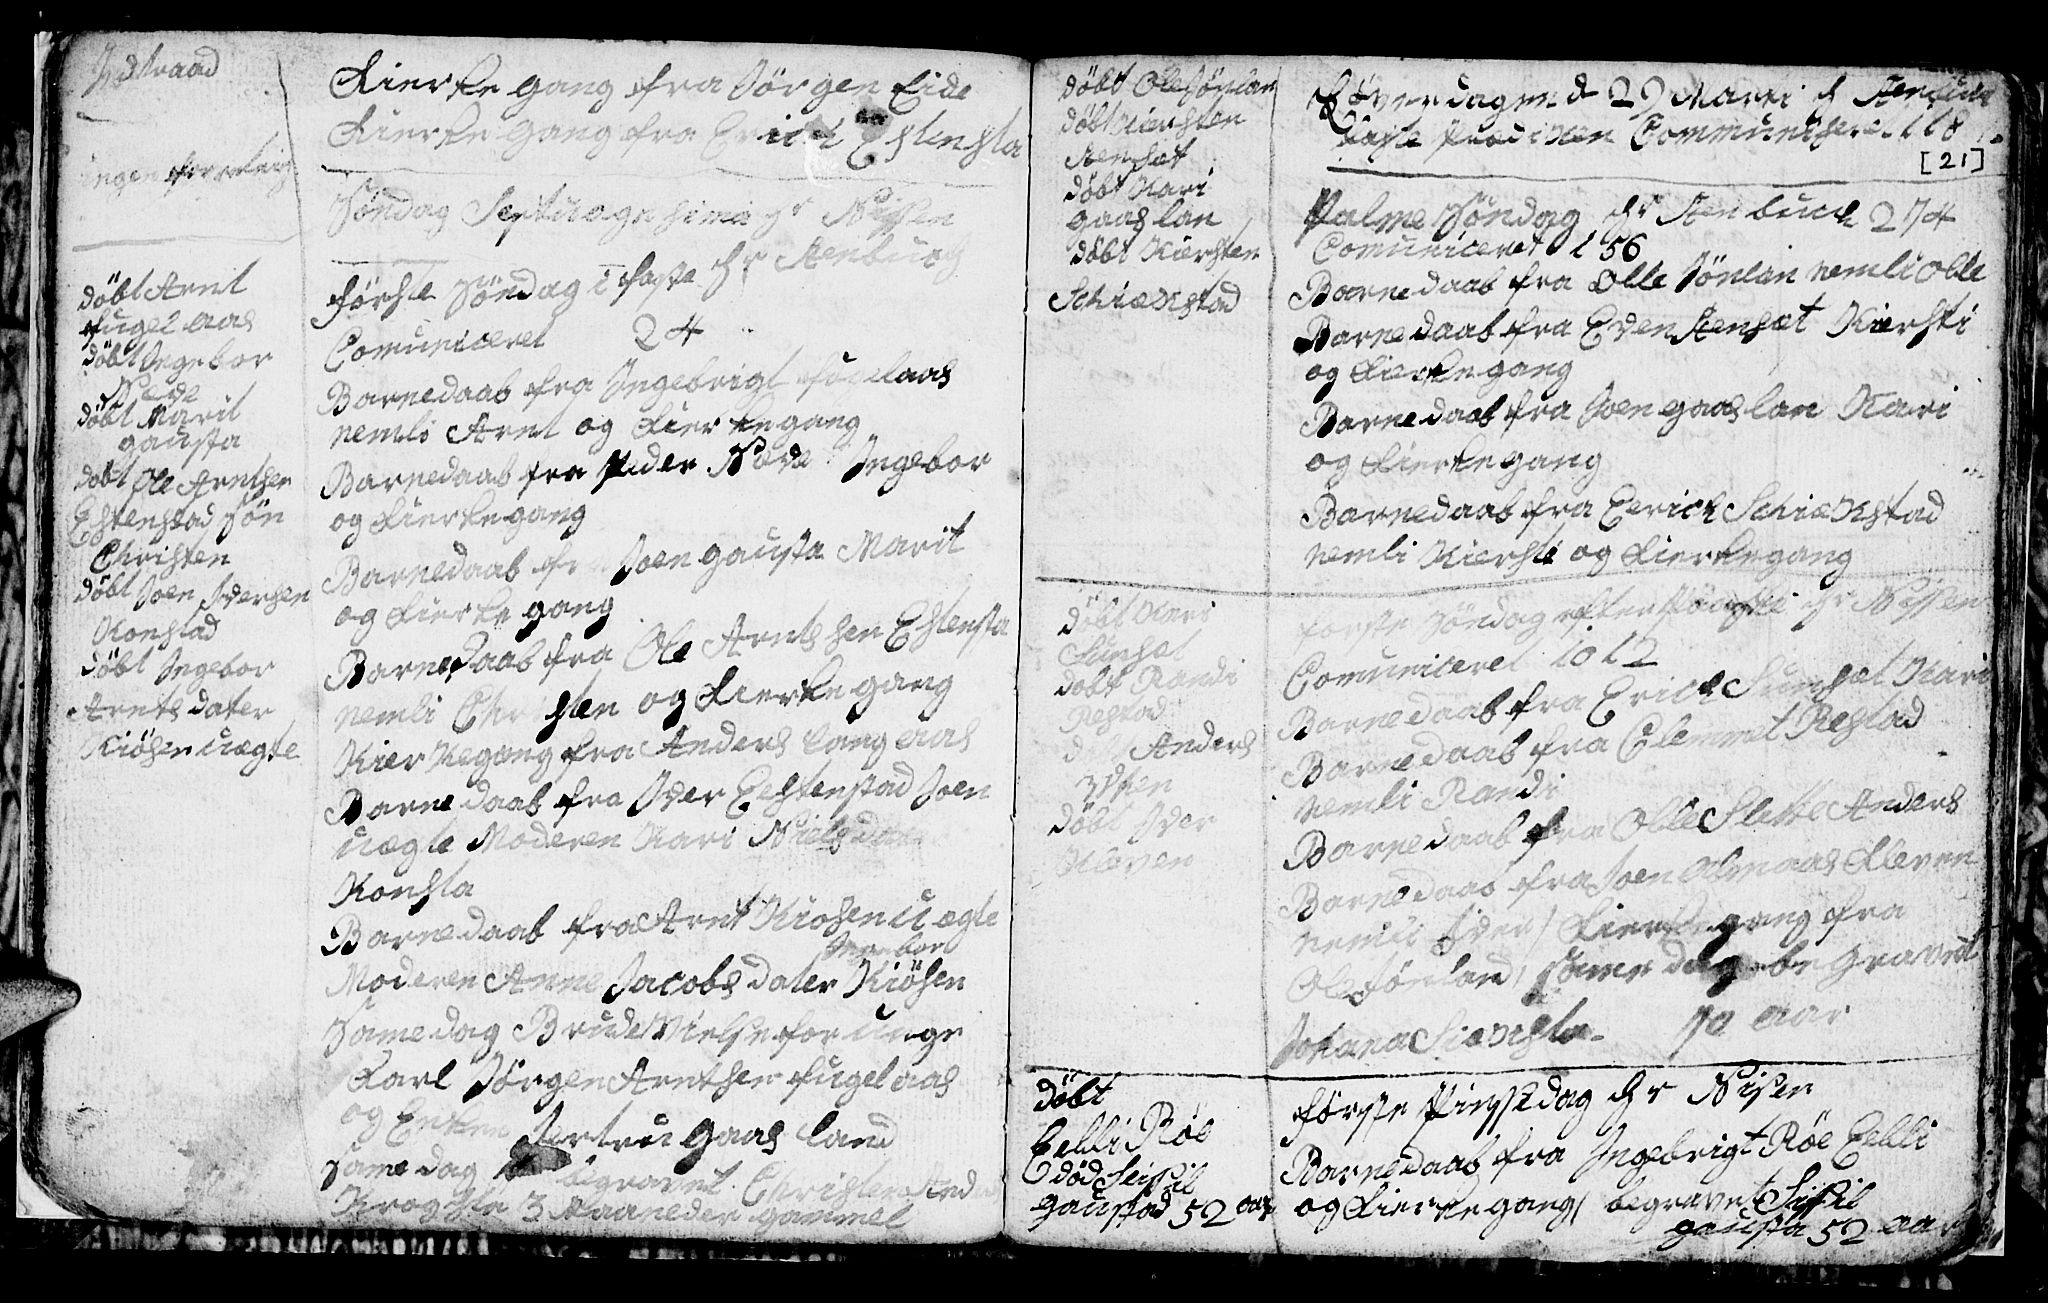 Ydstraad
ingen forretning
döbt Arnt
fugelaas
döbt Ingebor
Næve
döbt Marit
gausta
döbt Ole Arntsen
Estenstad Søn
Christen
döbt Joen Iversen
Konstad
döbt Ingebor
Arnts dater
Kiösen uægte
Kierke gang fra Jörgen Eide
Kierke gang fra Erick Estensta
Söndag Septuagesima hr Nissen
förste Söndag i faste hr Stenbuch
Comuniceret 24
Barnedaab fra Ingebrigt fugelaas
nemli Arnt og Kierkegang
Barnedaab fra Peder Næve Ingebor
og Kierkegang
Barnedaab fra Joen gausta Marit
og Kierke gang
Barnedaab fra Ole Arntssen Estensta
nemli Christen og Kierkegang
Kierkegang fra Anders Langaas
Barnedaab fra Iver Eestenstad Joen
uægte Moderen Kari Nielsdater
Konsta
Barnedaab fra Arnt Kiosen uægte
Ingebor
Moderen Anne Jacobsdater Kiösen
Same dag BrudeVielse for unge
Karl Jörgen Arntsen fugelaas
og Enken Jertru Gaasland
Same dag begravet Christen And
Krogsta 3 Maaneder gammel
döbt Ole Sönlan
döbt Kiersten
Stensæt
döbt Kari
gaaslan
döbt Kiersten
Schiækstad
döbt Kari
Sunset
döbt Randi
Restad
d Anders
döbt Iver
Kleven
Döbt
Eelli Röe
död Seissil
gaustad 52 aar
Löverdagen d 29 Marti hr Stenbuch
faste Prædicken Communiceret 118
[21]
Palme Söndag hr Stenbuch 274
Comuniceret 156
Barnedaab fra Olle Sönlan nemli Olle
Barnedaab fra Even Stensæt Kiersti
og Kierkegang
Barnedaab fra Joen gaaslan Kari
og Kierkegang
Barnedaab fra Eerick Schiækstad
nemli Kiersti og Kierkegang
förste Söndag efter Paaske hr Nissen
Comuniceret 1012
Barnedaab fra Erick Sunsæt Kari
Barnedaab fra Clemmet Restad
nemli Randi
Barnedaab fra Olle Slette Anders
Barnedaab fra Joen Almaas Kleven
nemli Iver / Kierkegang fra
Ole Sönland / Same dag begravet
Johana Siæksta 70 aar
förste Pinsedag hr Nissen
Barnedaab fra Ingebrigt Röe Eelli
og Kierkegang / begravet Sissil
gausta 52 aar